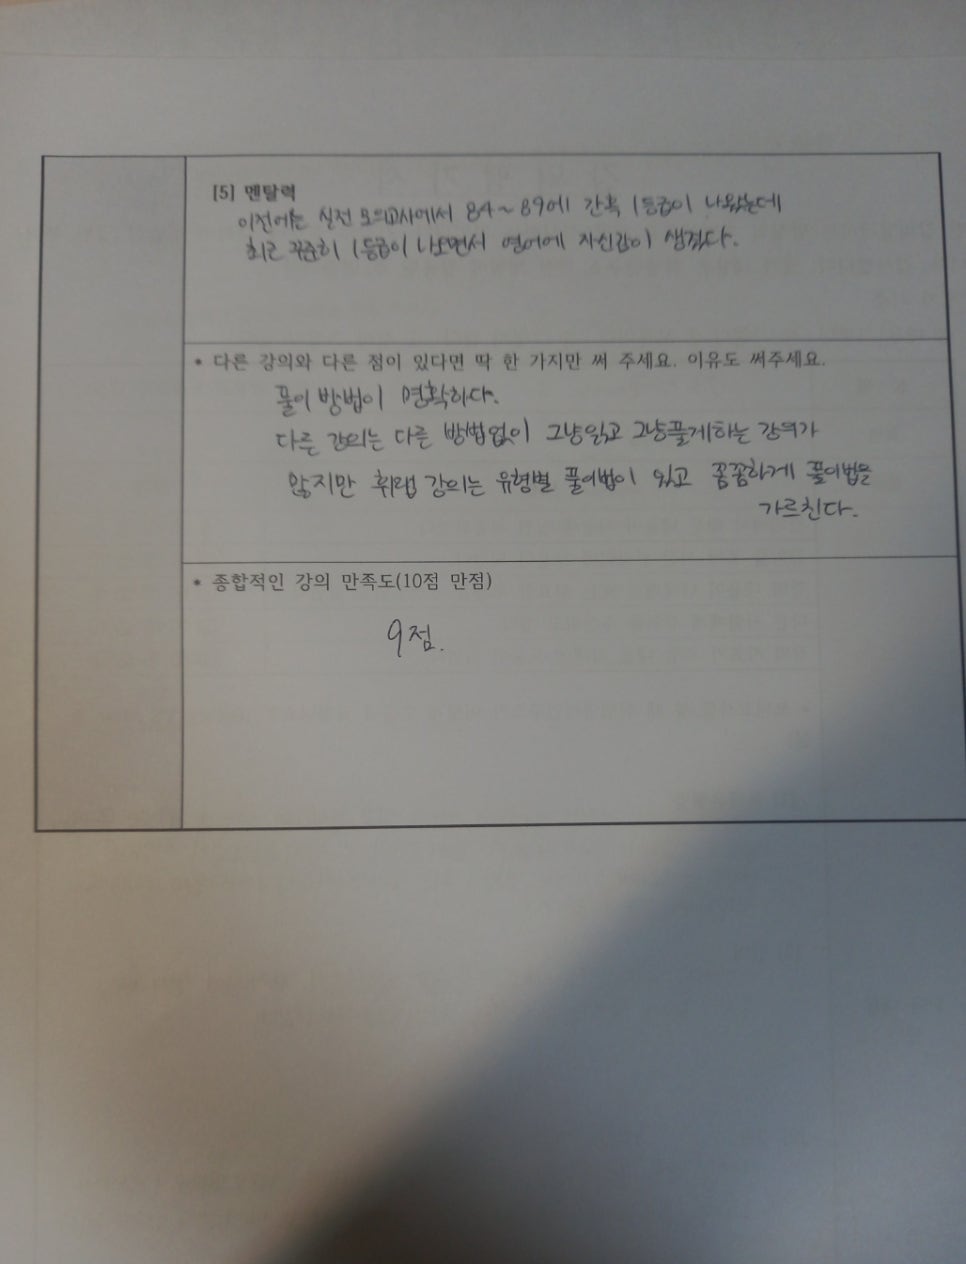 [5] 멘탈력
이전에는 실전 모의고사에서 84~89에 간혹 1등급이 나왔는데
최근 꾸준히 1등급이 나오면서 영어에 자신감이 생겼다.
* 다른 강의와 다른 점이 있다면 딱 한 가지만 써 주세요. 이유도 써주세요.
풀이 방법이 명확하다.
다른 강의는 다른 방법없이 그냥읽고 그냥풀게하는 강의가
많지만 휘랩 강의는 유형별 풀이법이 있고 꼼꼼하게 풀이법을
가르친다.
* 종합적인 강의 만족도(10점 만점)
9점.